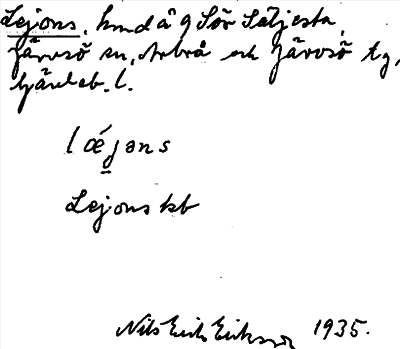 Lejons, hmd å g Sör Säljesta,
Järvsö sn, Arbrå och Järvsö tg,
Gävleb. l.
lǽjəns
Lejons kb
Nils Erik Eriksson 1935.